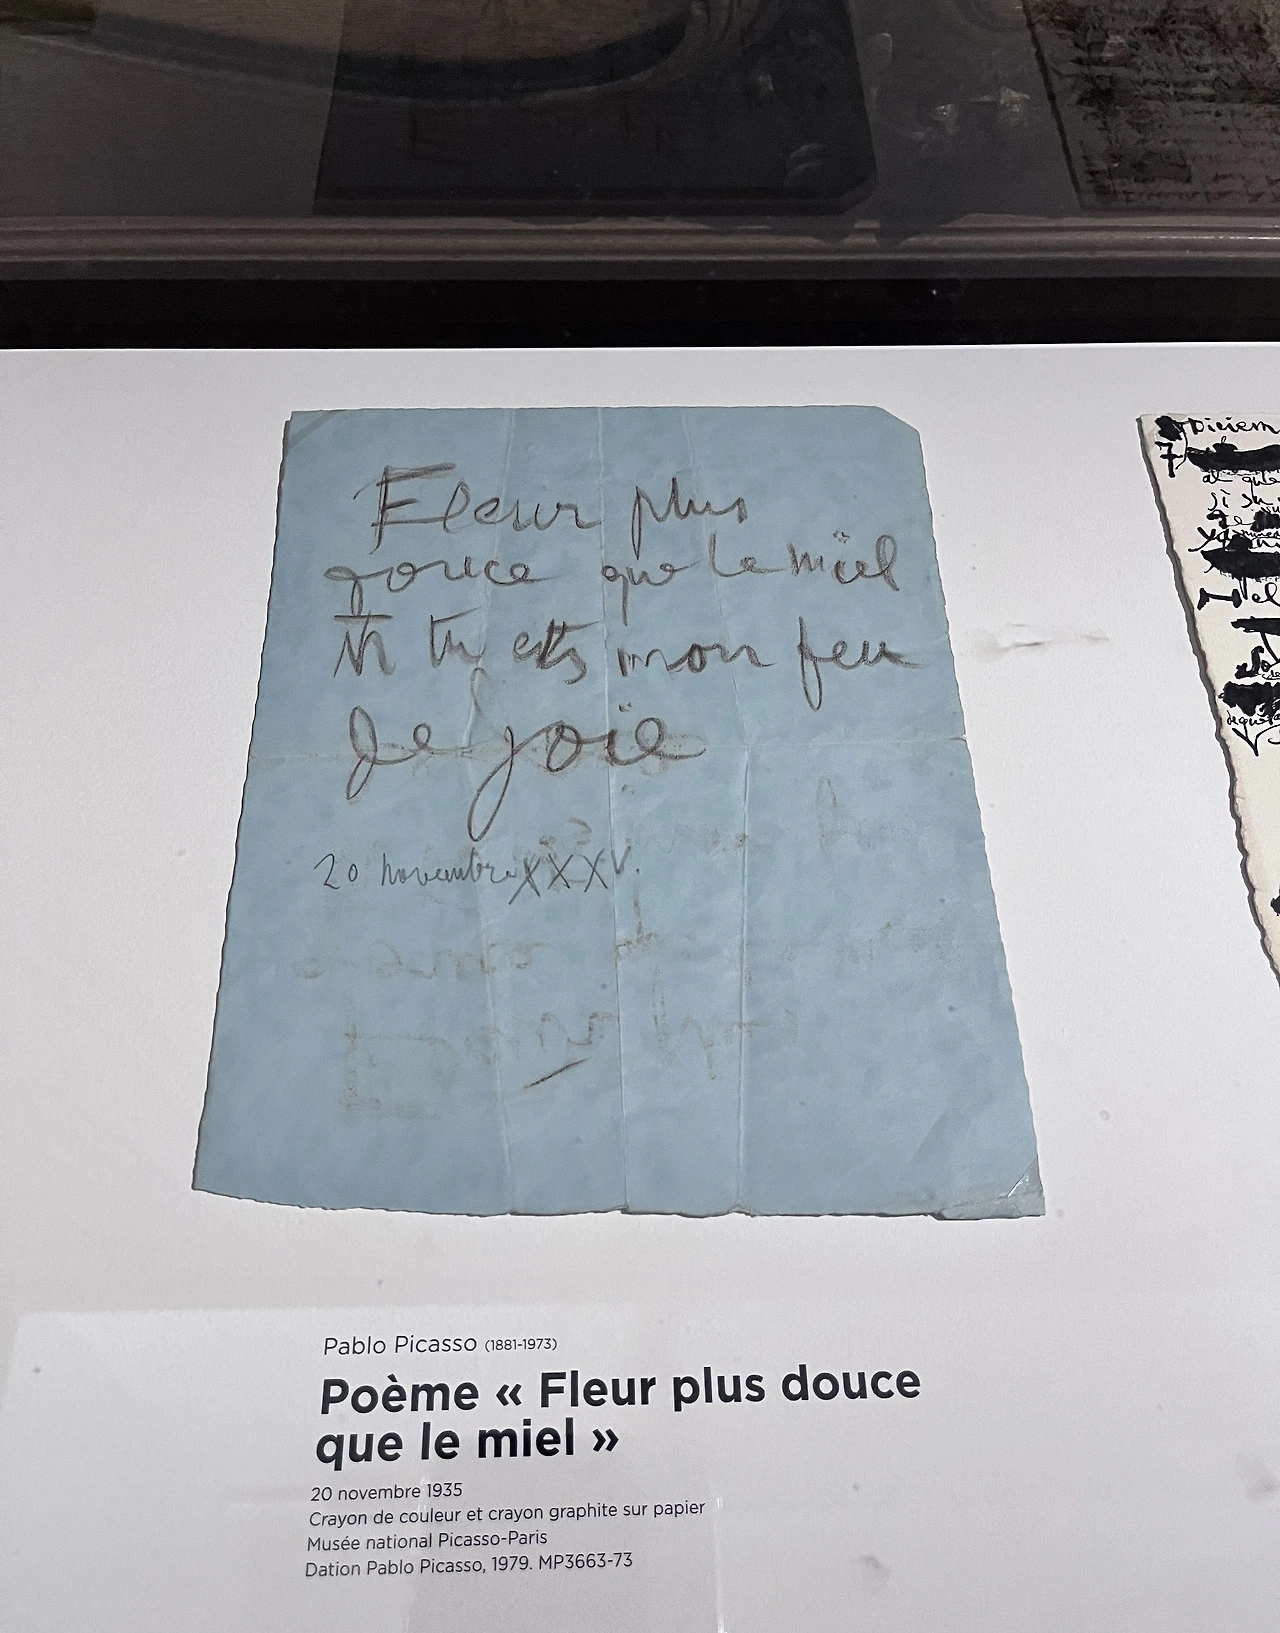 Fleur plus
douce que le miel
tu es mon feu
de joie
20 novembre XXXV.
Diciem
7
Pablo Picasso (1881-1973)
Poème « Fleur plus douce
que le miel »
20 novembre 1935
Crayon de couleur et crayon graphite sur papier
Musée national Picasso-Paris
Dation Pablo Picasso, 1979. MP3663-73